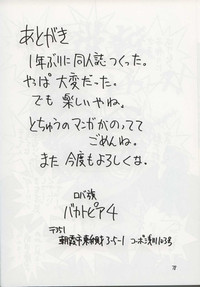 あとがき
1年ぶりに同人誌つくった。
やっぱ大変だった。
でも楽しいやね。
とちゅうのマンガかのってて
ごめんね。
また今度もよろしくな。
ロバ族
バカトピア4
〒351
朝霞市 3-5-1 103号